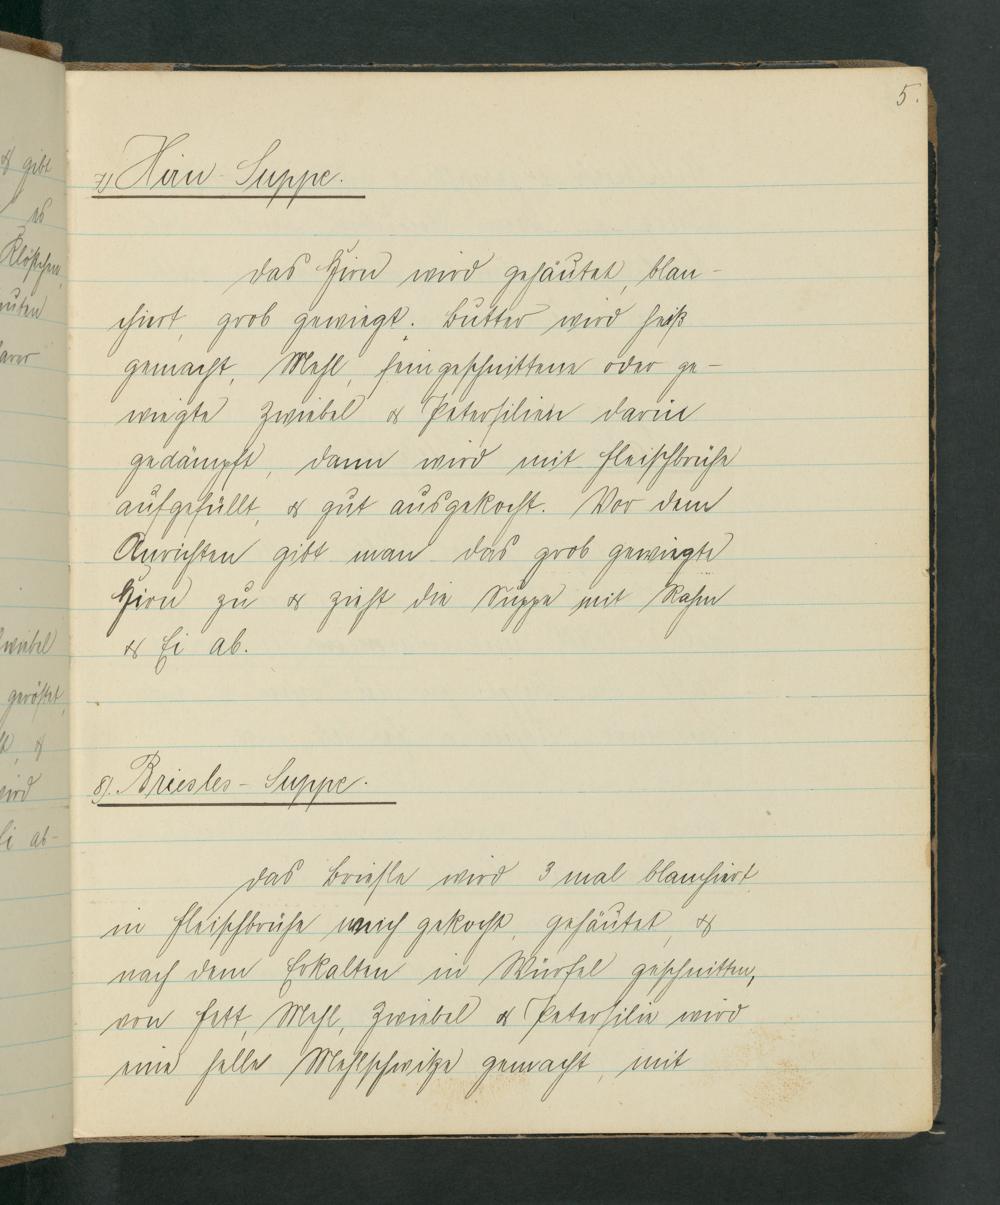 & gibt
es
Klößchen,
5.
7.) Hirn Suppe.
Das Hirn wird gehäutet, blan-
chiert, grob gewiegt. Butter wird heiß
gemacht, Mehl, feingeschnittene oder ge-
wiegte Zwiebel & Petersilien darin
gedämpft, dann wird mit Fleischbrühe
aufgefüllt, & gut ausgekocht. Vor dem
Anrichten gibt man das grob gewiegte
Hirn zu & zieht die Suppe mit Rahm
& Ei ab.
Zwiebel
geröstet,
&
wird
Ei ab-
8). Briesles-Suppe.
Das Briesle wird 3 mal blanchiert
in Fleischbrühe weich gekocht, gehäutet, &
nach dem Erkalten in Würfel geschnitten,
von Fett, Mehl, Zwiebel & Petersilie wird
eine helle Mehlschwitze gemacht, mit